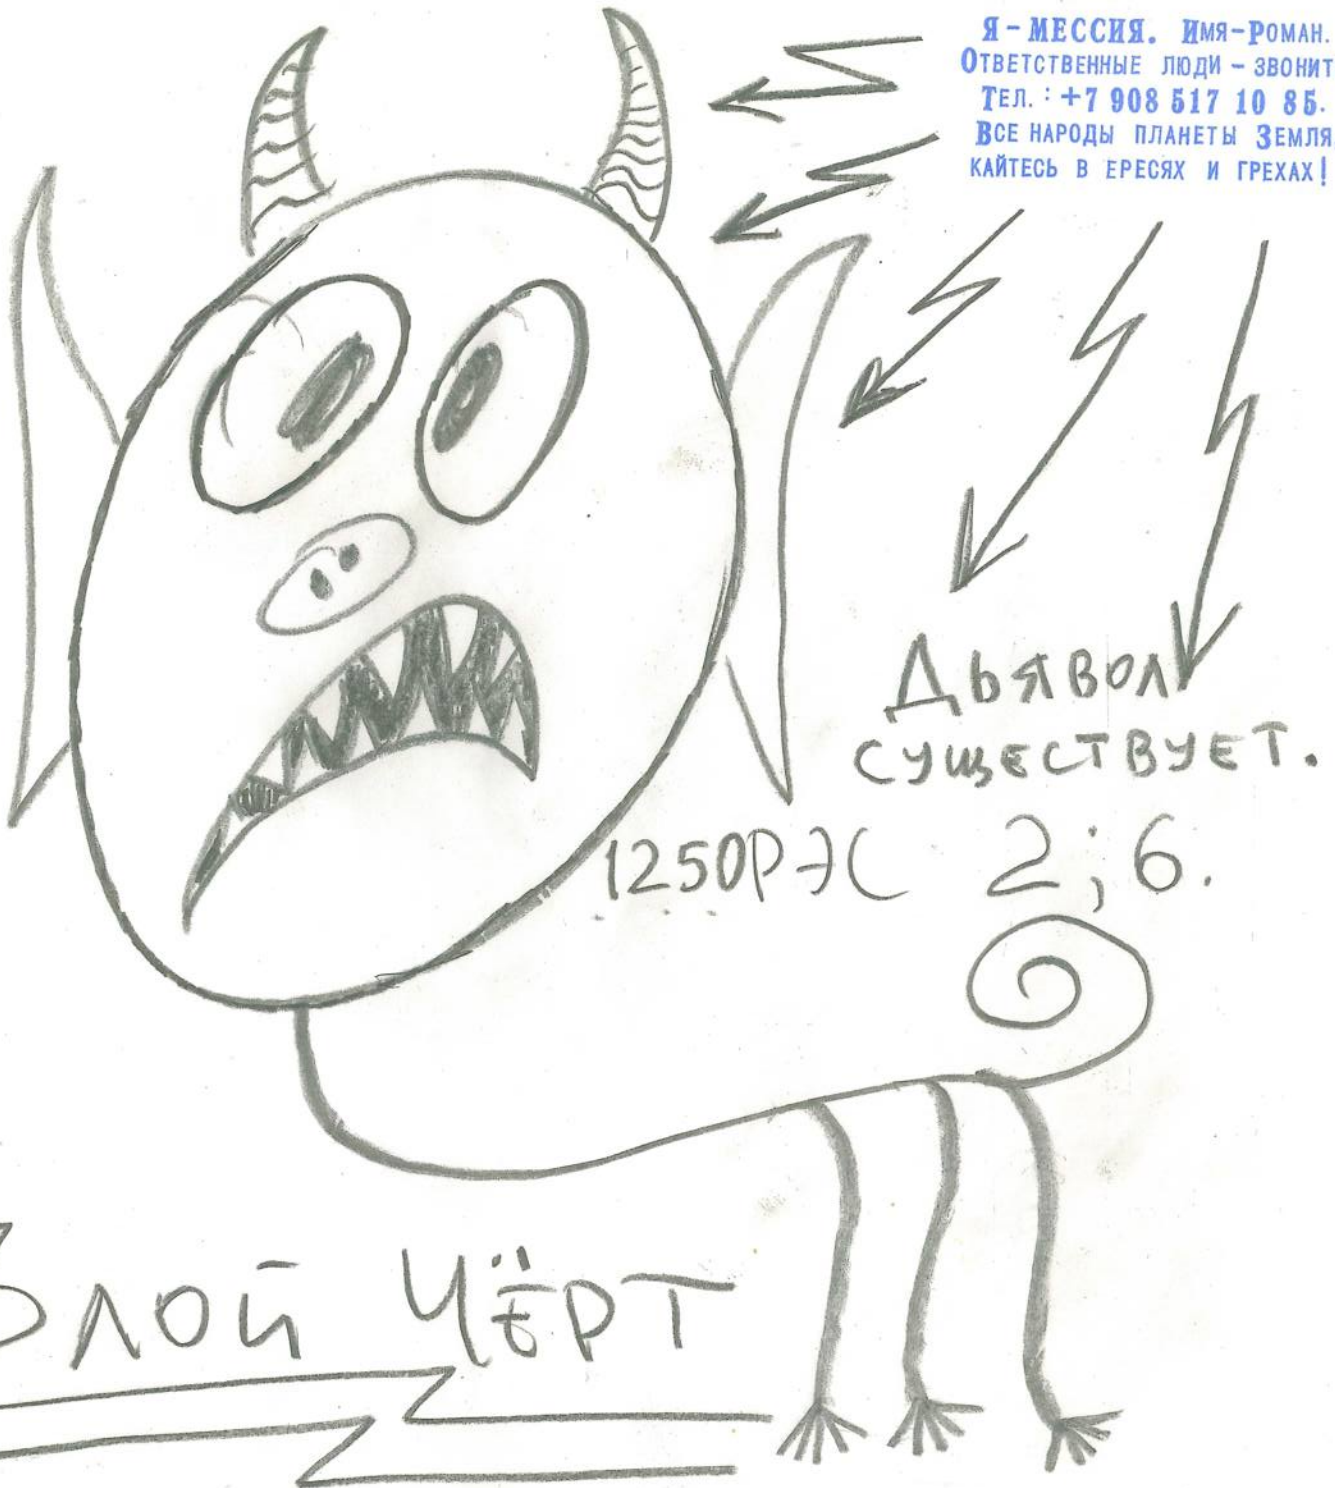 Я - МЕССИЯ. ИМЯ-РОМАН.
ОТВЕТСТВЕННЫЕ ЛЮДИ - ЗВОНИТ
ТЕЛ. : +7 908 517 10 85.
ВСЕ НАРОДЫ ПЛАНЕТЫ ЗЕМЛЯ
КАЙТЕСЬ В ЕРЕСЯХ И ГРЕХАХ!
ДЬЯВОЛ
СУЩЕСТВУЕТ.
1250РЭС 2;6.
ЗЛОЙ ЧЁРТ